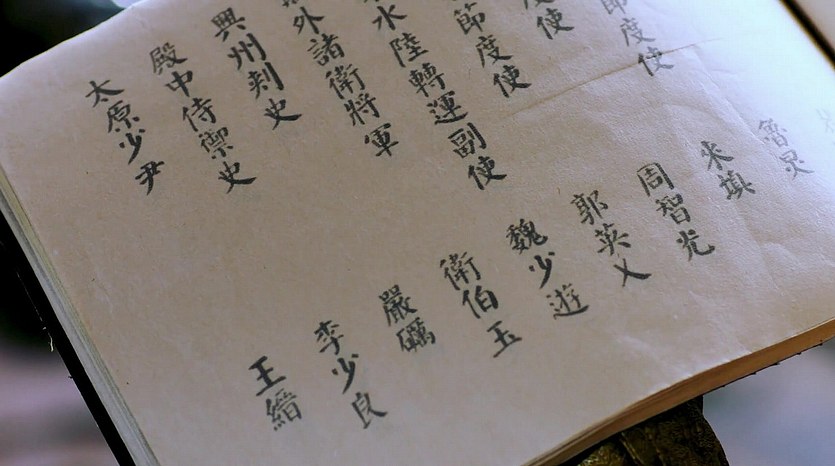 魯炅
節度使 來瑱
度使 周智光
節度使 郭英乂
水陸轉運副使 魏少遊
外諸衛將軍 衛伯玉
興州刺史 嚴礪
殿中侍禦史 李少良
太原少尹 王縉